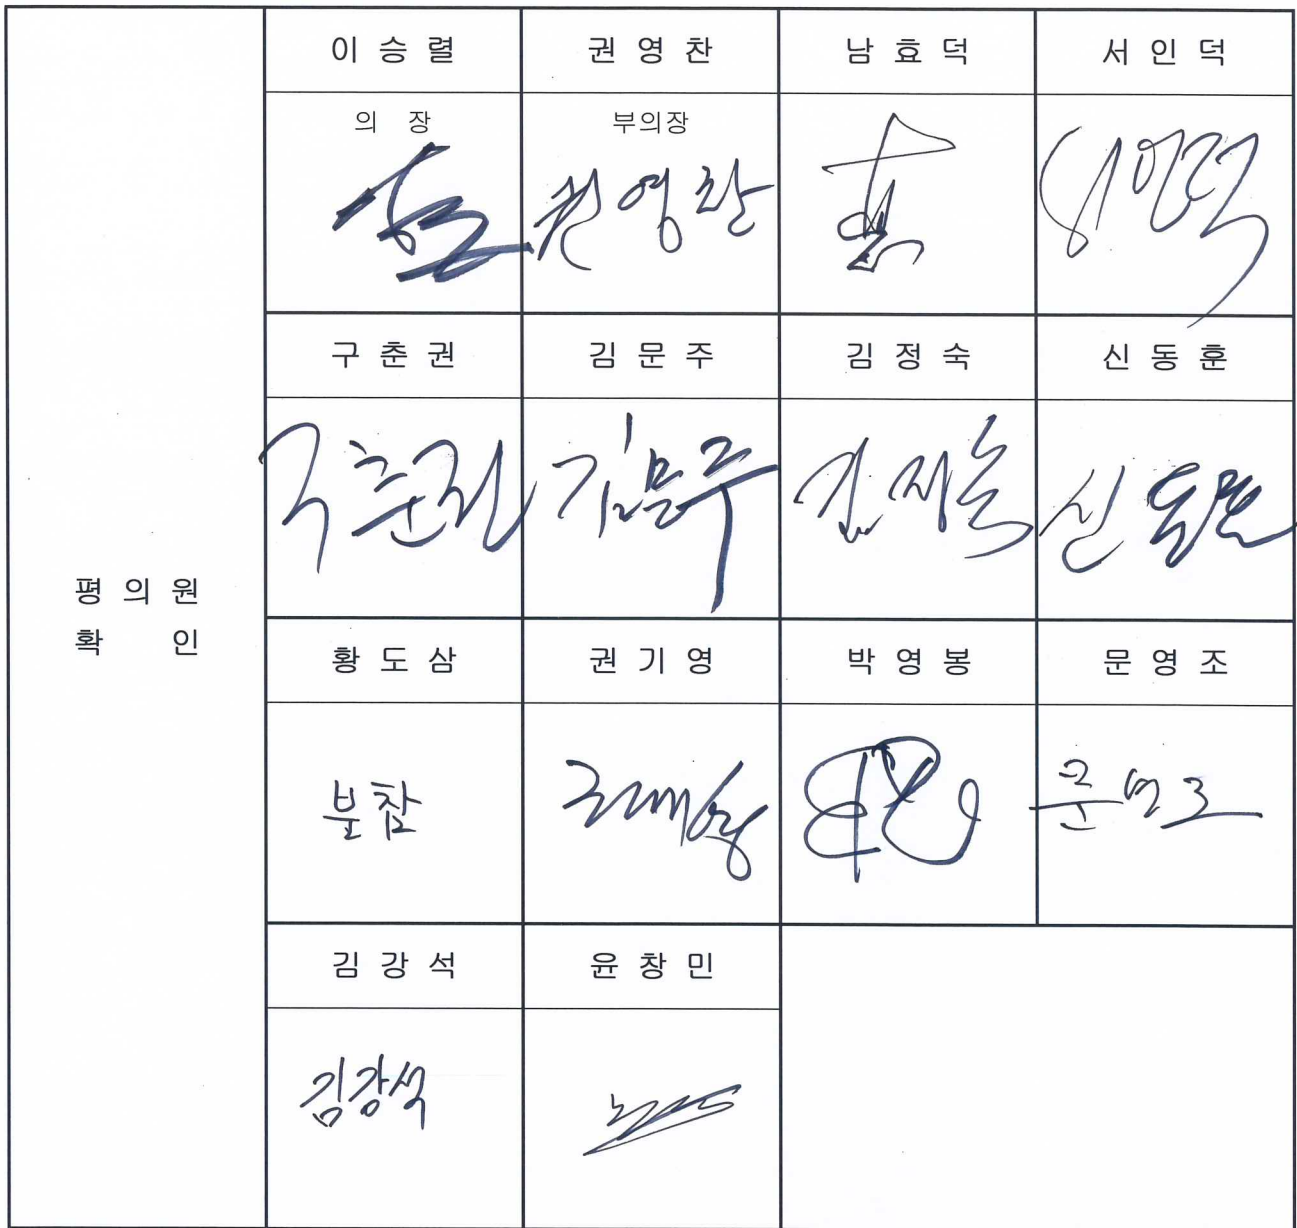 이 승 렬 권 영 찬 남 효 덕 서 인 덕
의 장 부의장
권영찬 서인덕
구 춘 권 김 문 주 김 정 숙 신 동 훈
구춘권 김문주 김정숙 신동훈
평 의 원
확 인
황 도 삼 권 기 영 박 영 봉 문 영 조
불참 문영조
김 강 석 윤 창 민
김강석